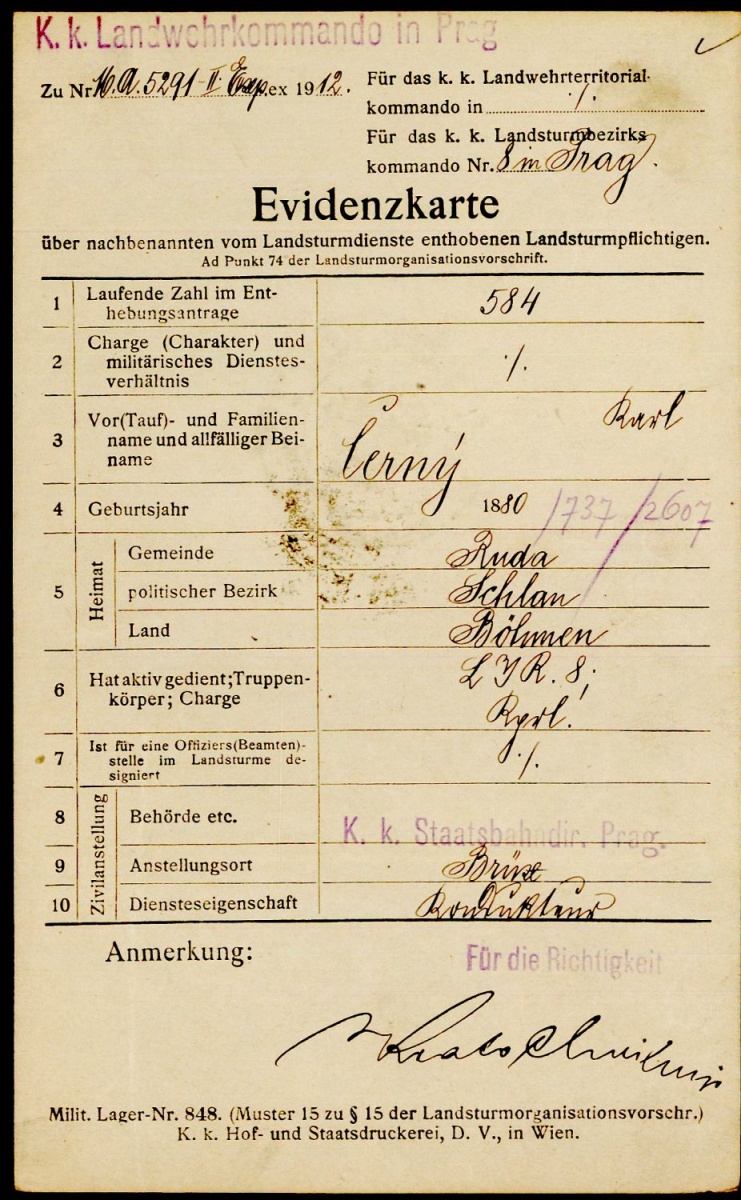 K. k. Landwehrkommando in Prag
Zu Nr. M.A. 5291-II. Exp. ex 1912.
Für das k. k. Landwehrterritorial-
kommando in ·/.
Für das k. k. Landsturmbezirks
kommando Nr. 8 in Prag.
Evidenzkarte
über nachbenannten vom Landsturmdienste enthobenen Landsturmpflichtigen.
Ad Punkt 74 der Landsturmorganisationsvorschrift.
1 Laufende Zahl im Ent-
hebungsantrage 584
2 Charge (Charakter) und
militärisches Dienstes-
verhältnis ·/.
3 Vor(Tauf)- und Familien-
name und allfälliger Bei-
name Černý Karl
4 Geburtsjahr 1880 /737/2607
5 Heimat
Gemeinde Ruda
politischer Bezirk Schlan
Land Böhmen
6 Hat aktiv gedient; Truppen-
körper; Charge LIR. 8;
Kprl.
7 Ist für eine Offiziers(Beamten)-
stelle im Landsturme de-
signiert ·/.
Zivilanstellung
8 Behörde etc. K. k. Staatsbahndir. Prag.
9 Anstellungsort Brüx
10 Diensteseigenschaft Kondukteur
Anmerkung:
Für die Richtigkeit
Milit. Lager-Nr. 848. (Muster 15 zu § 15 der Landsturmorganisationsvorschr.)
K. k. Hof- und Staatsdruckerei, D. V., in Wien.